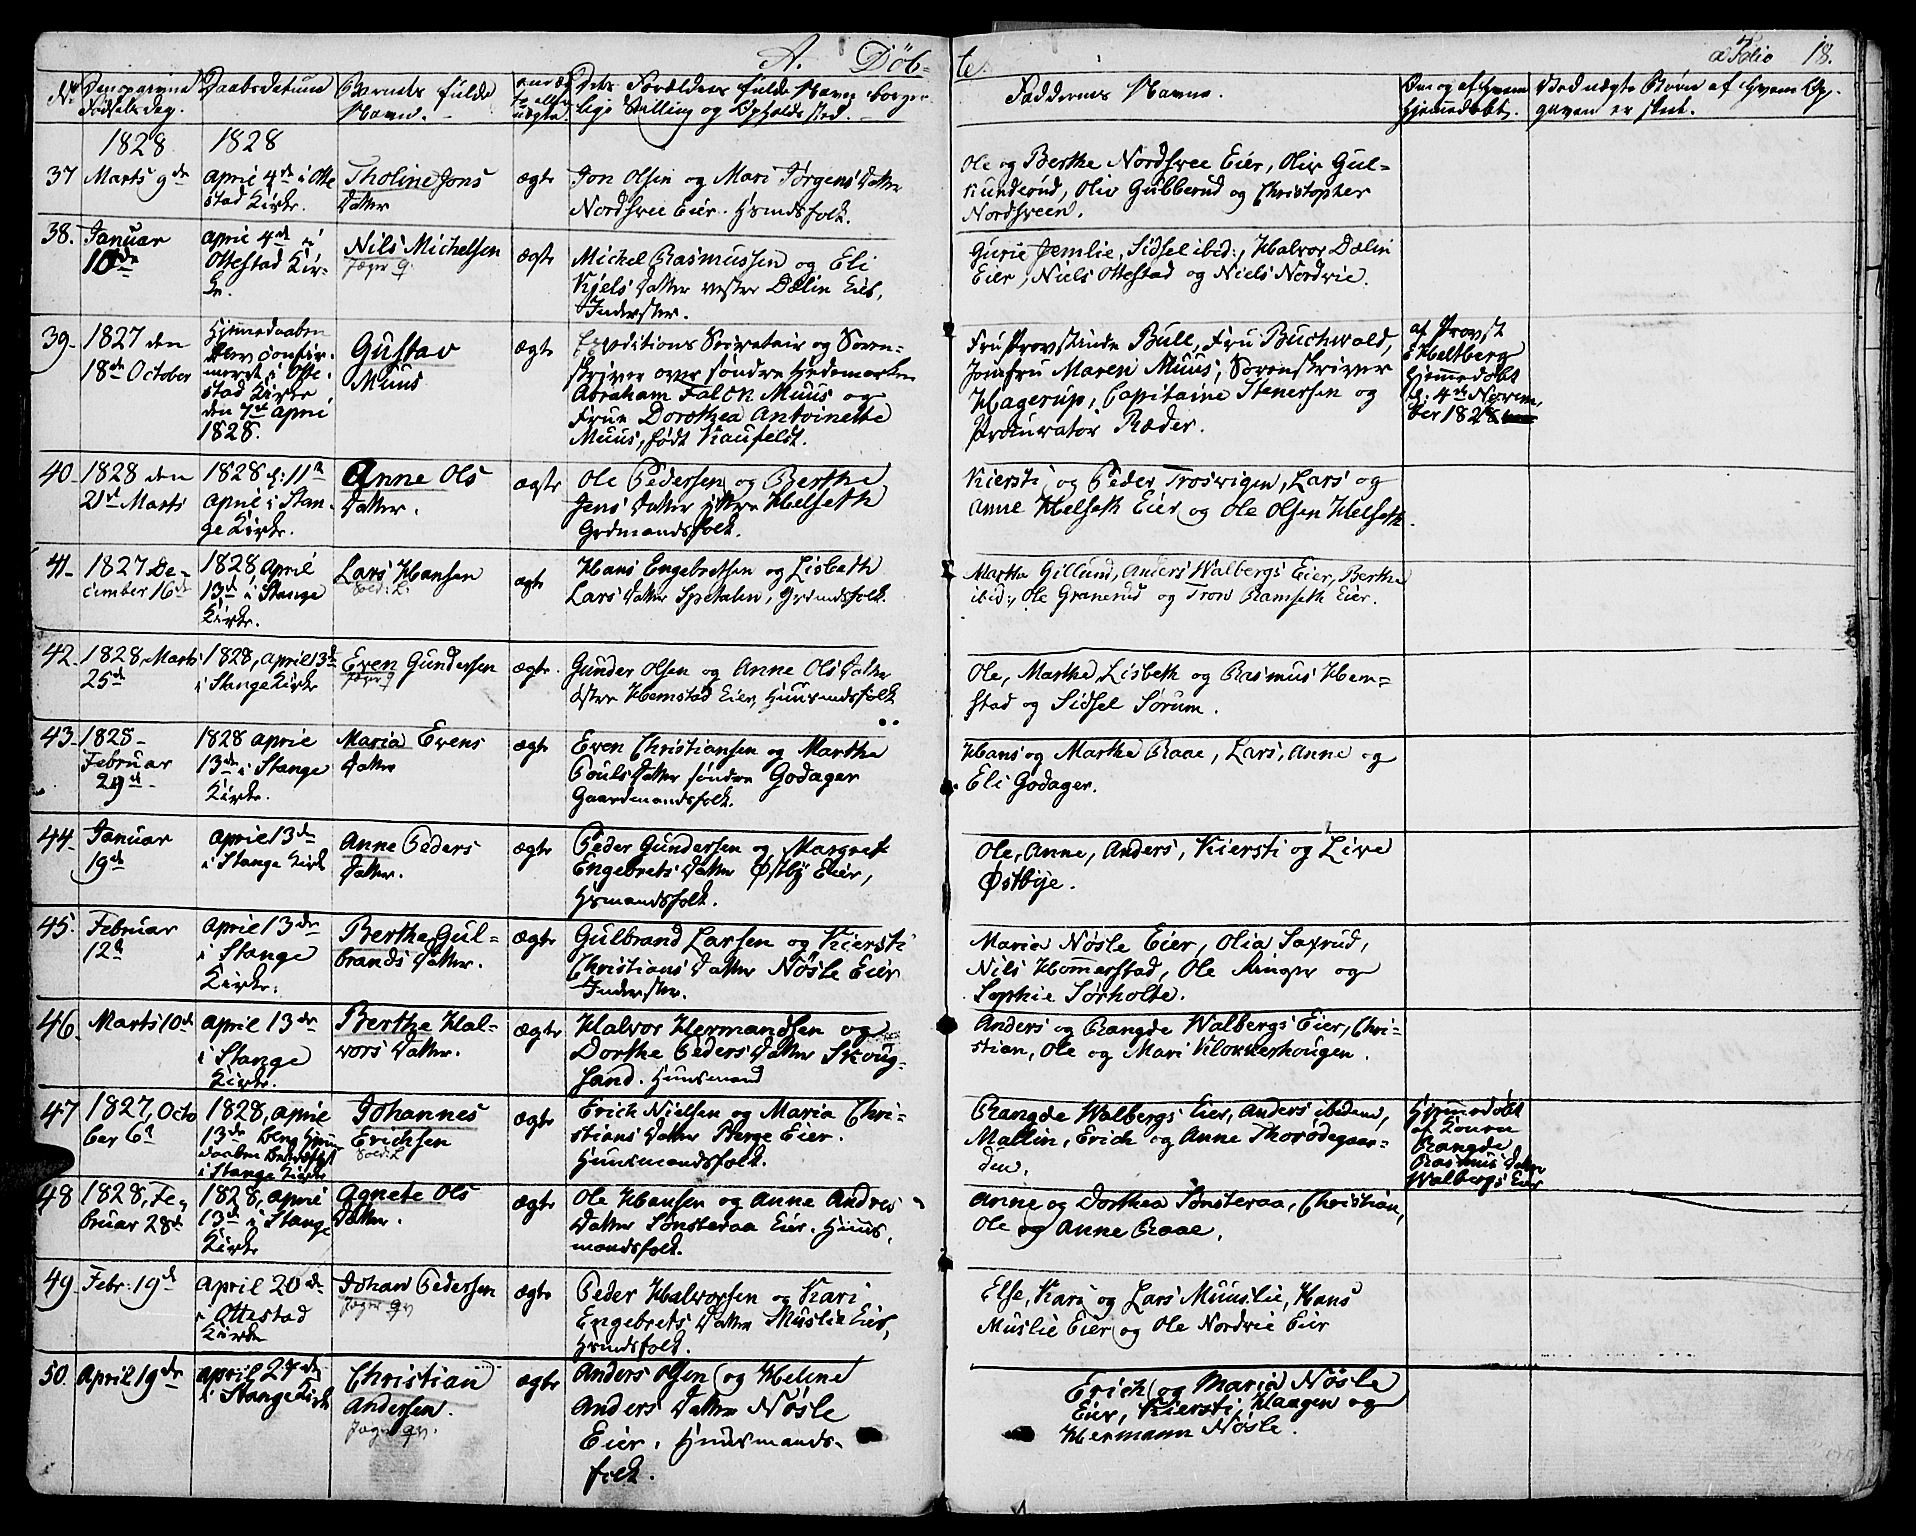 A. Döb- te. a Folio 18.
No Den opgivne Daabsdatum Barnets fulde om ægte eller uægte Dets Forældres fulde Navn borger- Faddernes Navne. Om og af hvem Ved uægte Børn af hvem Op-
Fødselsdag. Navn. lige Stilling og Opholdssted. hjemmedøbt. gaven er skeet.
1828 1828
37 Marts 9de April 4de i Otte
stad Kirke.
Tholine Jons
Datter
ægte
Jon Olsen og Mari Jørgens Datter
Nordsvee Eier. Huusmdsfolk.
Ole og Berthe Nordsvee Eier, Oliv Gul-
kunderud, Oliv Gubberud og Christopher
Nordsveen.
38. Januar
10de
April 4de i
Ottestad Kir-
ke.
Nils Michelsen
ægte
Michel Rasmussen og Eli
Kjels Datter vestre Dælin Eie,
Inderster.
Gurie Jemlie, Sidsel ibid:, Halvor Dælin
Eier, Niels Ottestad og Niels Nordvie.
39- 1827 den
18de October
Hjemmedaaben
blev confir-
meret i Otte-
stad Kirke
den 7de April
1828.
Gustav
Muus
ægte
Expeditions Secretair og Soren-
skriver over søndre Hedemarken
Abraham Falck Muus og
Frue Dorothea Antoinette
Muus, født Kaufeldt.
Fru Provstinde Bull, Fru Buchwald,
Jomfru Maren Muus, Sorenskriver
Hagerup, Capitaine Stenersen og
Procurator Ræder.
af Provst
Heltberg
hjemmedøbt
d: 4de Novem
ber 1828
40- 1828 den
21de Marts
1828 d: 11te
April i Stan-
ge Kirke.
Anne Ols
Datter.
ægte
Ole Pedersen og Berthe
Jens Datter Helseth
Grdmandsfolk.
Kiersti og Peder Trosvigen, Lars og
Anne Helseth Eier og Ole Olsen Helseth.
41- 1827 De-
cember 16de
1828 April
13de i Stange
Kirke.
Lars Hansen
ægte
Hans Engebretsen og Lisbeth
Lars Datter Spetalen, Grdmdsfolk.
Marthe Gillund, Anders Walbergs Eier, Berthe
ibid:, Ole Granerud og Tron Ramseth Eier.
42- 1828, Marts
25de
1828, April 13de
i Stange Kirke
Even Gundersen
ægte.
Gunder Olsen og Anne Ols Datter
østre Hemstad Eier, Huusmdsfolk
Ole, Marthe, Lisbeth og Rasmus Hem-
stad og Sidsel Sørum.
43- 1828-
Februar
29de
1828 April
13de i Stange
Kirke.
Maria Evens
Datter
ægte
Even Christiansen og Marthe
Pouls Datter søndre Godager
Gaardmandsfolk.
Hans og Marthe Raae, Lars, Anne og
Eli Godager.
44- Januar
19de
April 13de
i Stange Kirke
Anne Peders
Datter.
ægte
Peder Gundersen og Margret
Engebrets Datter Østby Eier,
Hsmandsfolk.
Ole, Anne, Anders, Kiersti og Live
Østbye.
45. Februar
12te
April 13de
i Stange
Kirke.
Berthe Gul-
brands Datter.
ægte
Gulbrand Larsen og Kiersti
Christians Datter Nøsle Eier
Inderster.
Maria Nøsle Eier, Olia Saxrud,
Nils Hommerstad, Ole Ringer og
Sophie Sørholte.
46. Marts 10de
April 13de
i Stange
Kirke.
Berthe Hal-
vors Datter.
ægte
Halvor Hermandsen og
Dorthe Peders Datter Skoug-
land. Huusmand
Anders og Rangde Walbergs Eier, Chri-
stian, Ole og Mari Klokkerhougen.
47 1827, Octo
ber 6te
1828, April
13de blev Hjem
daaben bekræftet
i Stange Kirke
Johannes
Erichsen
ægte
Erich Nielsen og Maria Chri-
stians Datter Berge Eier.
Huusmandsfolk.
Rangde Walbergs Eier, Anders ibidem,
Mallin, Erich og Anne Thorødegaar-
den.
Hjemmedøbt
af Konen
Rangde
Rasmus Datter
Walbergs Eier
48 1828, Fe-
bruar 28de
1828, April
13de i Stange
Kirke
Agnete Ols
Datter.
ægte
Ole Hansen og Anne Andres
Datter Sønsteraa Eier. Huus-
mandsfolk.
Anne og Dorthea Sønsteraa, Christian,
Ole og Anne Raae.
49 Febr: 19de
April 20de
i Ottestad
Kirke
Johan Pedersen
ægte
Peder Halvorsen og Kari
Engebrets Datter Muslie Eie,
Hsmdsfolk.
Else, Kari og Lars Muuslie, Hans
Muslie Eier og Ole Nordvie Eier
50. April 19de
April 27de
i Stange Kirk
Christian
Andersen.
ægte
Anders Olsen og Helene
Anders Datter Nøsle
Eier. Huusmands-
folk.
Erich og Maria Nøsle
Eier, Kiersti, Haagen og
Hermann Nøsle.